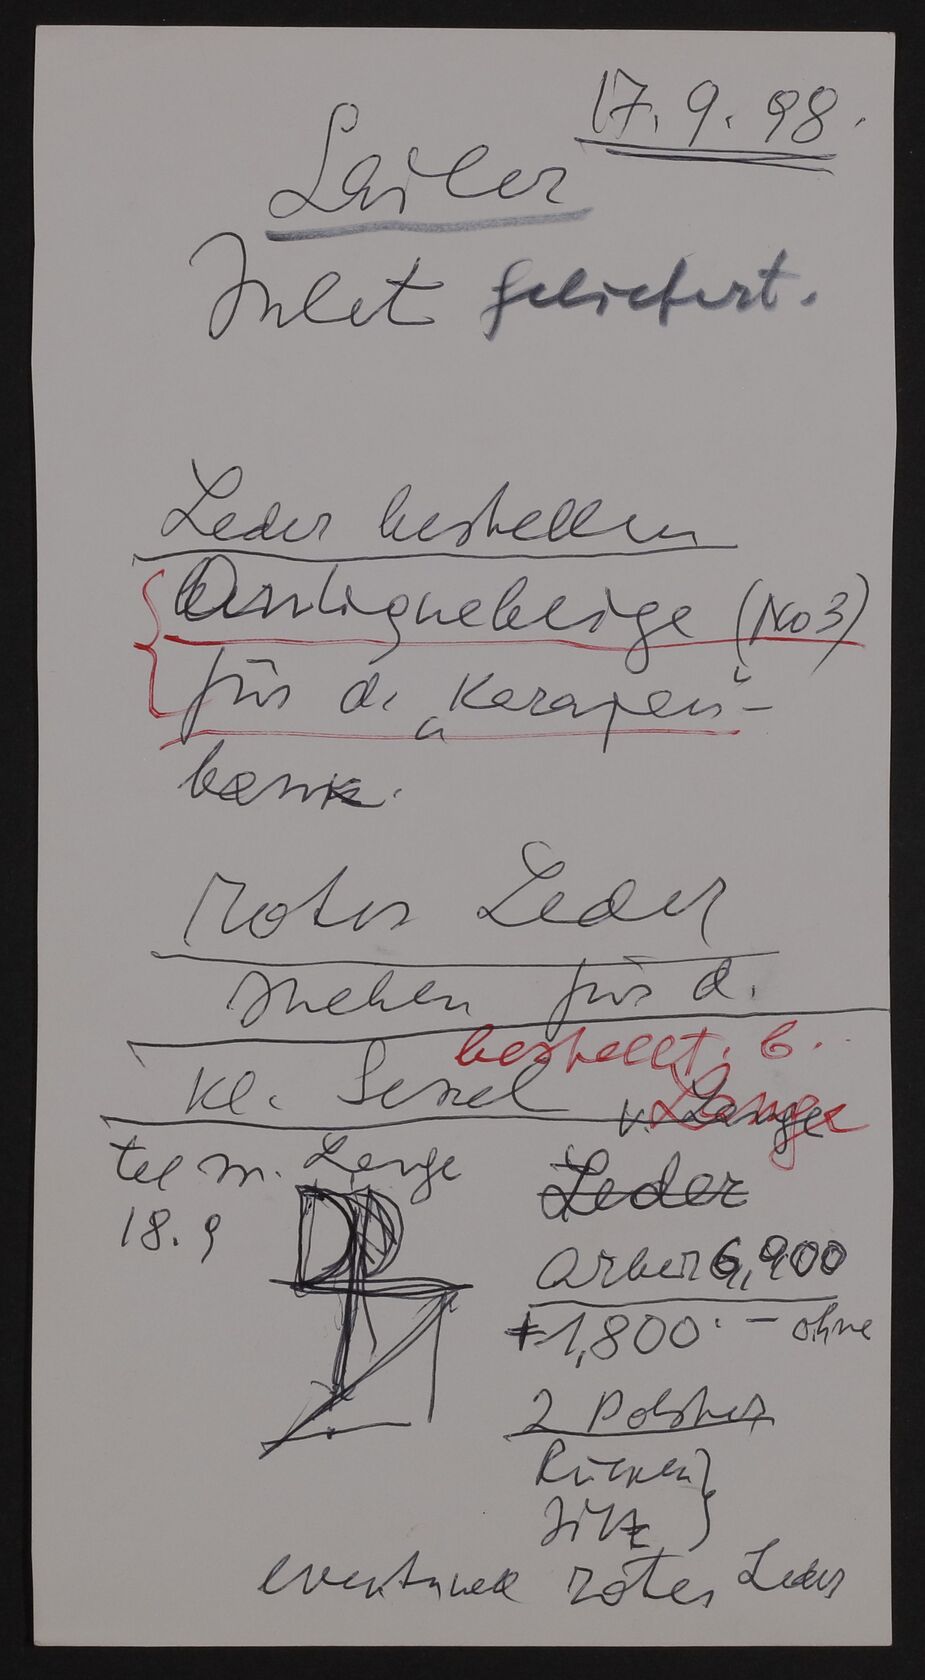 17.9.98.
Sailer
Inlet geliefert.
Leder bestellen
Antiquebeige (No 3)
für d. "Karaperi"-
bank.
rotes Leder
suchen für d.
kl. Sessel
bestellt. b.
v. Lange
tel m. Lange
18.9
Leder
Arbei 6,900
+1,800.- ohne
2 Polster
Rücken }
Sitz
eventuell rotes Leder